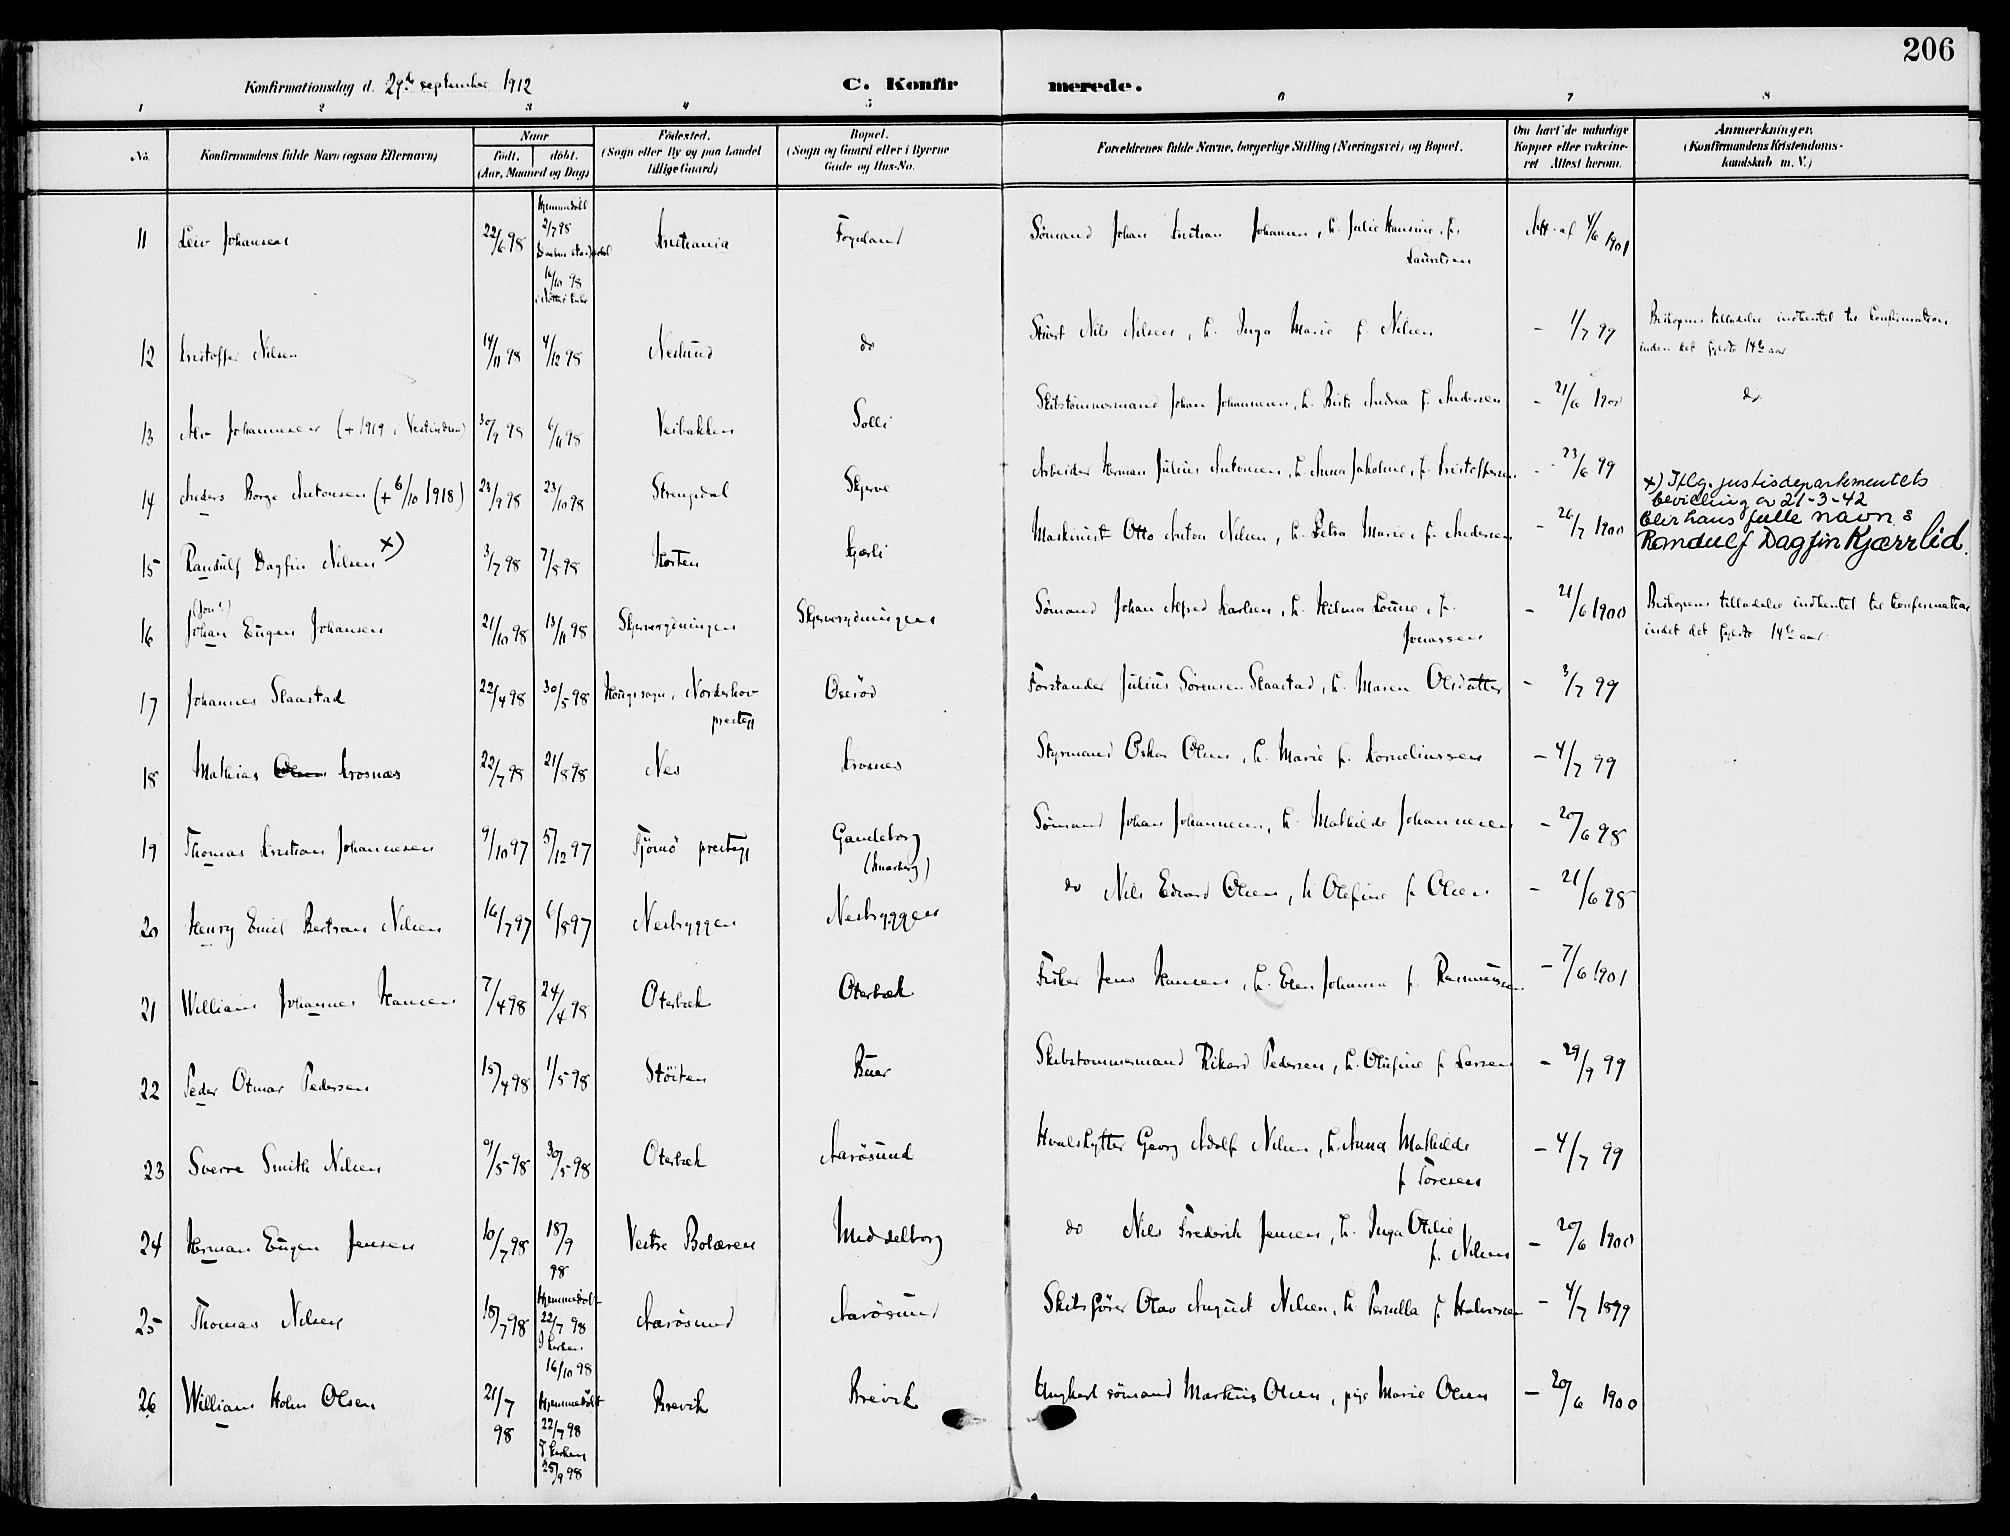 206
Konfirmationsdag d. 29de september 1912
C. Konfirmerede.
1 2 3 4 5 6 7 8
No. | Konfirmandens fulde Navn (ogsaa Efternavn) | Naar født. døbt. (Aar, Maaned og Dag) | Fødested. (Sogn eller By og paa Landet tillige Gaard) | Bopæl. (Sogn og Gaard eller i Byerne Gade og Hus-No. | Forældrenes fulde Navne, borgerlige Stilling (Næringsvei) og Bopæl. | Om havt de naturlige Kopper eller vakcineret Attest herom. | Anmerkninger. (Konfirmandens Kristendomskundskab m. V.)
11 Leiv Johansen 22/6 98 Hjemmedøbt 2/7 98 16/10 98 Kristiania Føynland Sømand Johan Kristian Johansen, h. Julie Hansine, f. Lauritsen Att. af 4/6 1901
12 Kristoffer Nilsen 14/11 98 4/12 98 Neslund do Nils Nilsen, h. Inga Marie f. Nilsen – 1/7 99 Biskopens tilladelse indhentet til Confirmation inden det fyldte 14de aar
13 Alv Johannessen (+ 1919 i Vestindien) 30/9 98 6/11 98 Veibakken Solli Skibstømmermand Johan Johannessen, h. Andrea f. Andersen – 21/6 1900 do
14 Anders Borge Antonsen (+ 6/10 1918) 23/9 98 23/10 98 Strengsdal Skjerve Arbeider Herman Julius Antonsen, h. Anna Jakobine, f. Kristoffersen – 23/6 99
15 Randulf Dagfin Nilsen x) 3/7 98 7/8 98 Horten Kjærli Maskinist Otto Anton Nilsen, h. Petra Marie f. Andersen – 26/7 1900 x) Iflg. justisdepartementets bevilling av 21-3-42 blir hans fulle navn: Randulf Dagfin Kjærrlid.
16 Johan Eugen Johansen 21/10 98 13/11 98 Skjerverydningen Skjerverydningen Sømand Johan Alfred Karlsen, h. Hilma Louise, f. Jonassen – 21/6 1900 Biskopens tilladelse indhentet til Confirmation indet det fyldte 14de aar.
17 Johannes Slaastad 22/4 98 30/5 98 Haugs sogn, Norderhov prestegj Oserød Forstander Julius Sørensen Slaastad, h. Maren Olsdatter – 3/7 99
18 Mathias Olsen Krosnæs 22/7 98 21/8 98 Nes Krosnes Styrmand Oskar Olsen, h. Marie f. Korneliussen – 4/7 99
19 Thomas Kristian Johannesen 9/10 97 5/12 97 Tjømø prestegj Gamleborg Sømand Johan Johannesen, h. Mathilde Johannesen – 20/6 98
20 Henry Emil Bertram Nilsen 16/7 97 6/8 97 Nesbryggen Nesbryggen do Nils Edvard Olsen, h Olefine f Olsen – 21/6 98
21 William Johannes Hansen 7/4 98 24/4 98 Oterbæk Oterbæk Fisker Jens Hansen, h. Elen Johanna f. Rasmussen – 7/6 1901
22 Peder Otmar Pedersen 15/4 98 1/5 98 Støiten Buer Skibstømmermand Rikard Pedersen, h. Olufine f Larsen – 29/9 99
23 Sverre Smith Nilsen 9/5 98 30/5 98 Oterbæk Aarøsund Hvalskytter Georg Adolf Nilsen, h. Anna Mathilde f Toresen – 4/7 99
24 Herman Eugen Jensen 10/7 98 18/9 98 Vestre Bolæren Middelborg do Nils Frederik Jensen, h. Inga Otilie f. Nilsen – 20/6 1900
25 Thomas Nilsen 18/7 98 Hjemmedøbt 22/7 98 I kirken 16/10 98 Aarøsund Aarøsund Skibsfører Olav August Nilsen, h Pernella f Halvorsen – 4/7 1899
26 William Holm Olsen 21/7 98 Hjemmedøbt 22/7 98 I kirken 25/9 98 Brevik Brevik Ungkarl sømand Markus Olsen, pige Marie Olsen – 20/6 1900